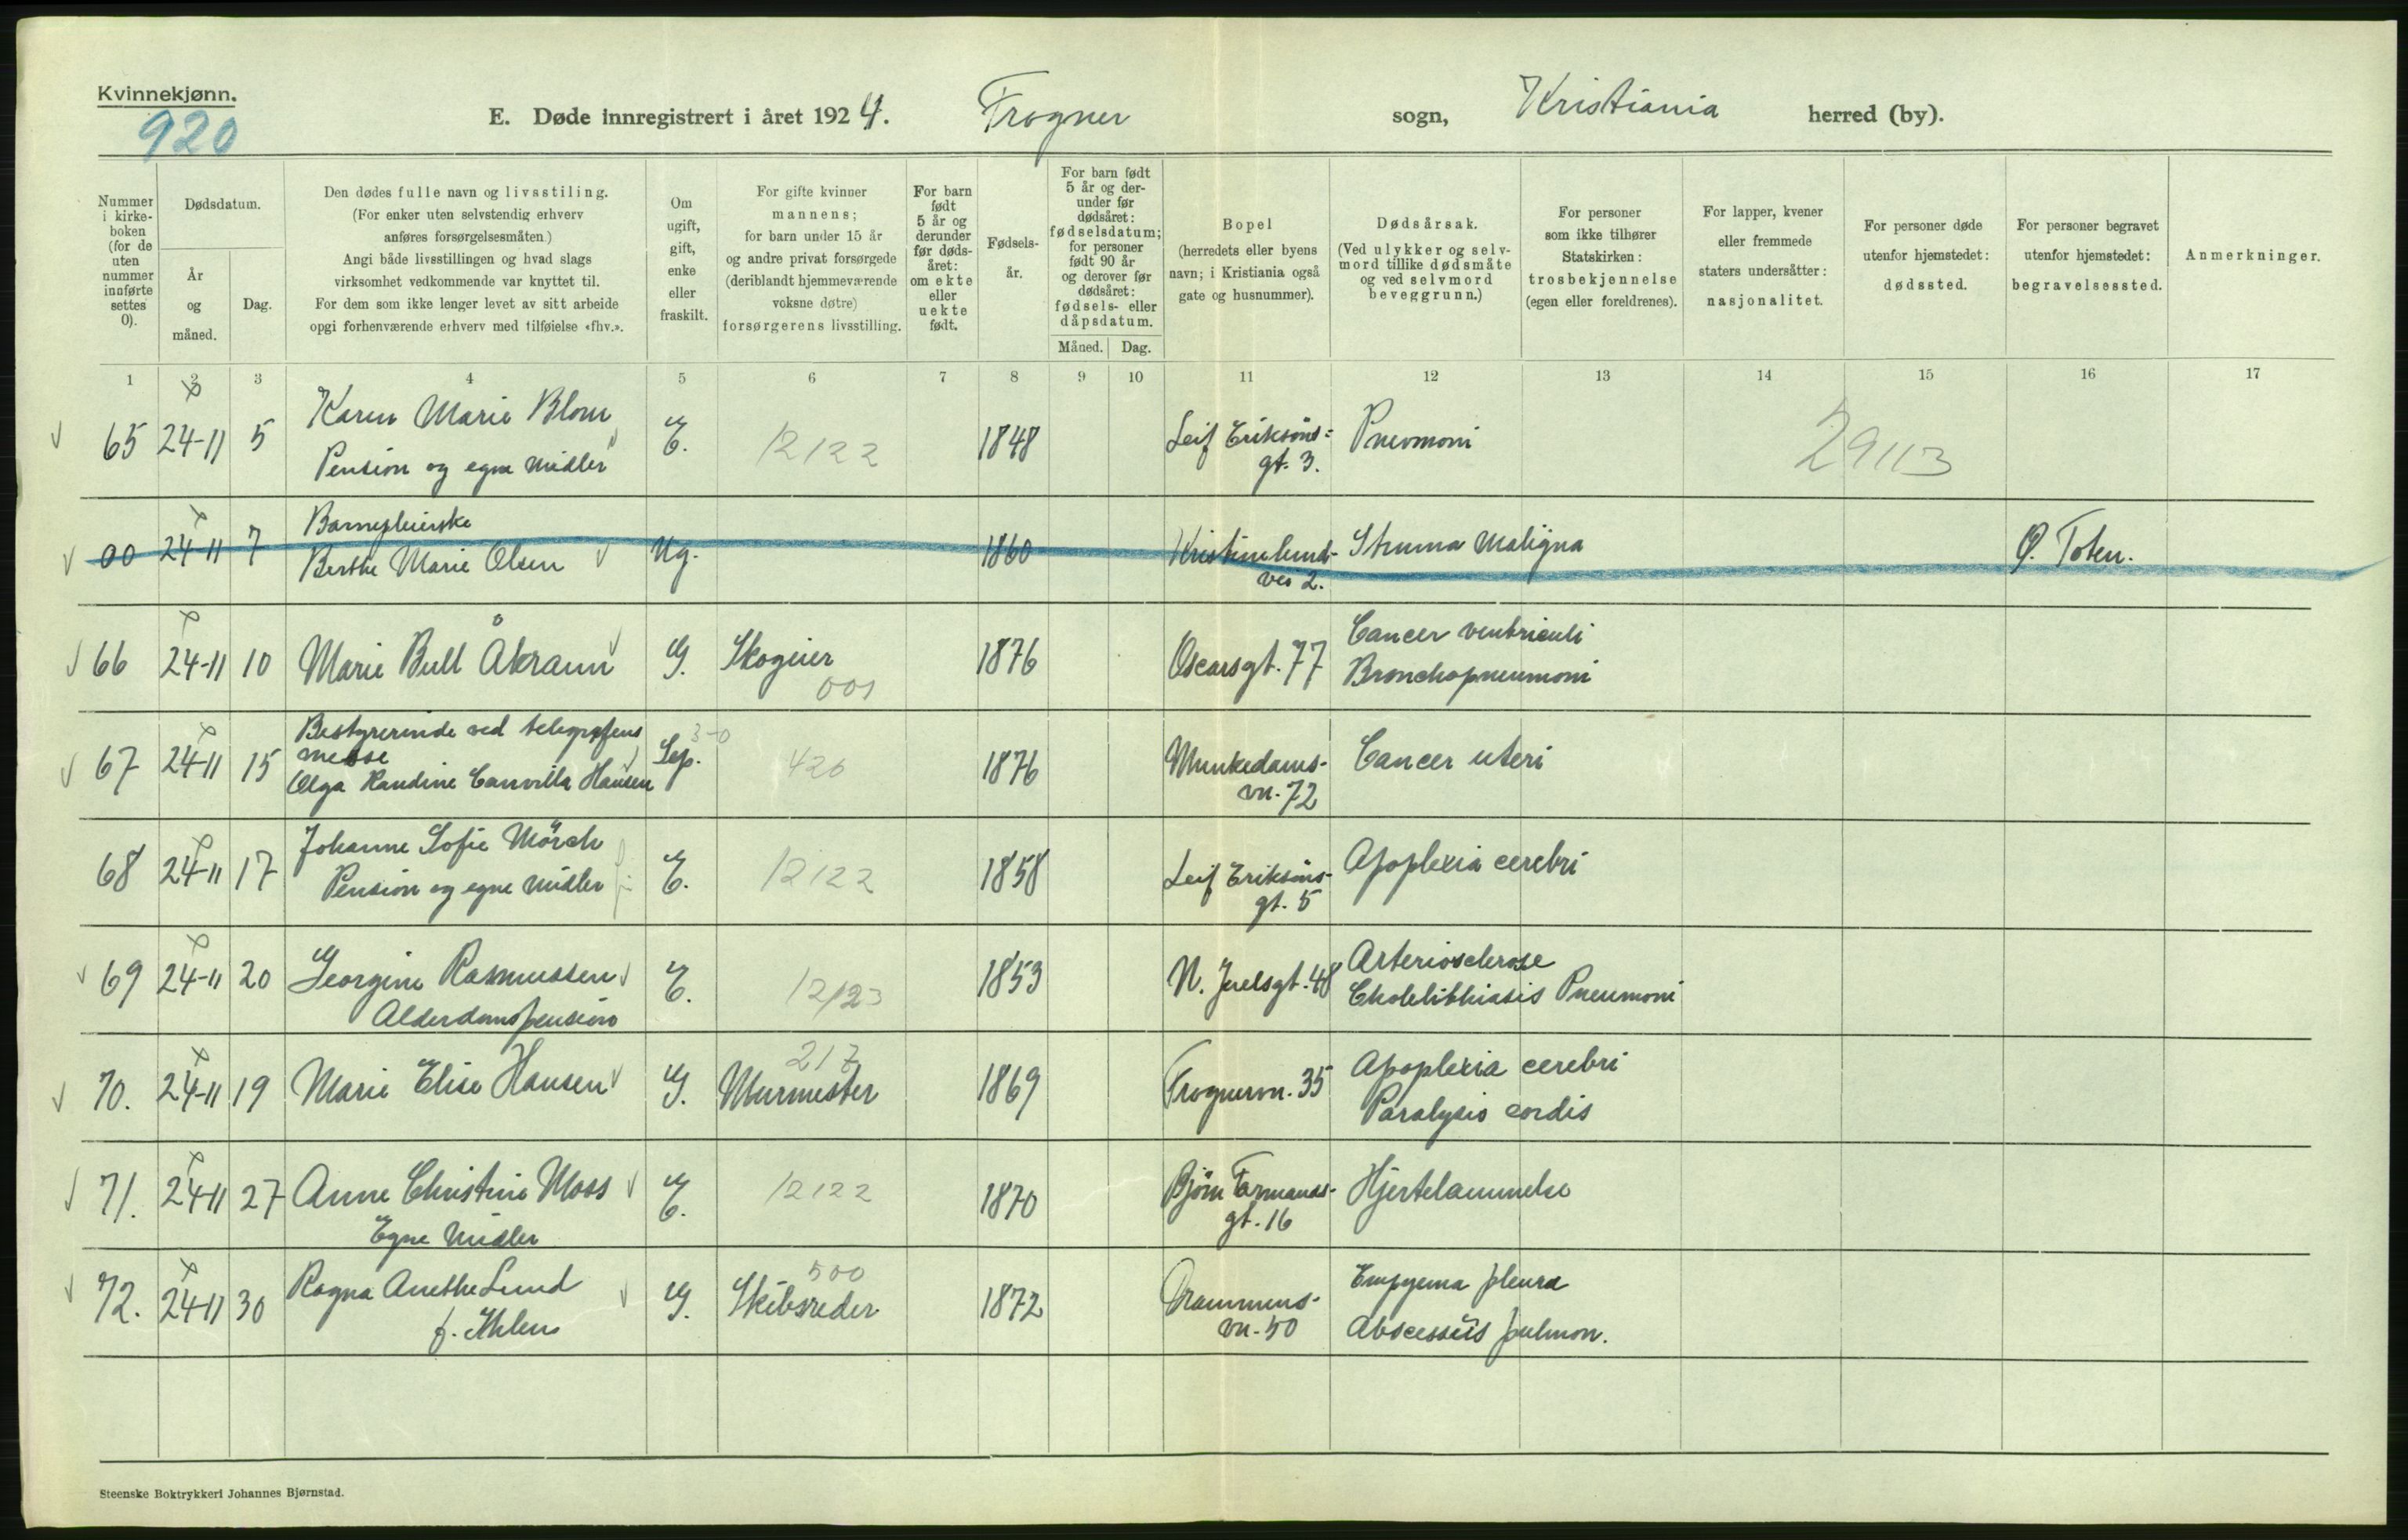 Kvinnekjønn.
920
E. Døde innregistrert i året 1924. Frogner sogn, Kristiania herred (by).
Nummer i kirkeboken (for de uten nummer innførte settes 0).
Dødsdatum.
År og måned.
Dag.
Den dødes fulle navn og livsstiling.
(For enker uten selvstendig erhverv
anføres forsørgelsesmåten.)
Angi både livsstillingen og hvad slags
virksomhet vedkommende var knyttet til.
For dem som ikke lenger levet av sitt arbeide
opgi forhenværende erhverv med tilføielse «fhv.».
Om ugift, gift, enke eller fraskilt.
For gifte kvinner
mannens;
for barn under 15 år
og andre privat forsørgede
(deriblandt hjemmeværende
voksne døtre)
forsørgerens livsstilling.
For barn født 5 år og derunder før dødsåret: om ekte eller uekte født.
Fødselsår.
For barn født 5 år og derunder før dødsåret: fødselsdatum; for personer født 90 år og derover før dødsåret: fødsels- eller dåpsdatum.
Måned. Dag.
Bopel
(herredets eller byens
navn; i Kristiania også
gate og husnummer).
Dødsårsak.
(Ved ulykker og selvmord tillike dødsmåte
og ved selvmord
beveggrunn.)
For personer
som ikke tilhører
Statskirken:
trosbekjennelse
(egen eller foreldrenes).
For lapper, kvener
eller fremmede
staters undersåtter:
nasjonalitet.
For personer døde
utenfor hjemstedet:
dødssted.
For personer begravet
utenfor hjemstedet:
begravelsessted.
Anmerkninger.
1 2 3 4 5 6 7 8 9 10 11 12 13 14 15 16 17
65 24-11 5 Karen Marie Blom E. 12122 1848 Leif Eriksöns= Pneumoni 29113
Pension og egne midler gt. 3.
Barnepleierske
00 24-11 7 Berthe Marie Olsen Ug. 1860 Kristinelund- Struma Maligna Ø. Toten.
vei 2.
66 24-11 10 Marie Bull Åkrann G. Skogeier 1876 Oscarsgt. 77 Cancer ventriculi
001 Bronchopneumoni
Bestyrerinde ved telegrafens 3-0
messe
67 24-11 15 Olga Randine Hansen Sep. 420 1876 Munkedams- Cancer uteri
vn. 72
68 24-11 17 Johanne Sofie Mörch E. 12122 1858 Leif Eriksöns- Apoplexia cerebri
Pension og egne midler gt. 5
69 24-11 20 Georgine Rasmussen E. 12123 1853 N. Juelsgt. 48 Arteriosclerose
Alderdomspension Cholelithiasis Pneumoni
217
70. 24-11 19 Marie Elise Hansen G. Murmester 1869 Frognervn. 35 Apoplexia cerebri
Paralysis cordis
71. 24-11 27 Anne Christine Moss E. 12122 1870 Björn Farmands- Hjertelammelse
Egne Midler gt. 16
500
72. 24-11 30 Ragna Anethe Lund G. Skibsreder 1872 Drammens- Empyema pleura
f. Ihlen vn. 50 Abscessus pulmon.
Steenske Boktrykkeri Johannes Bjørnstad.